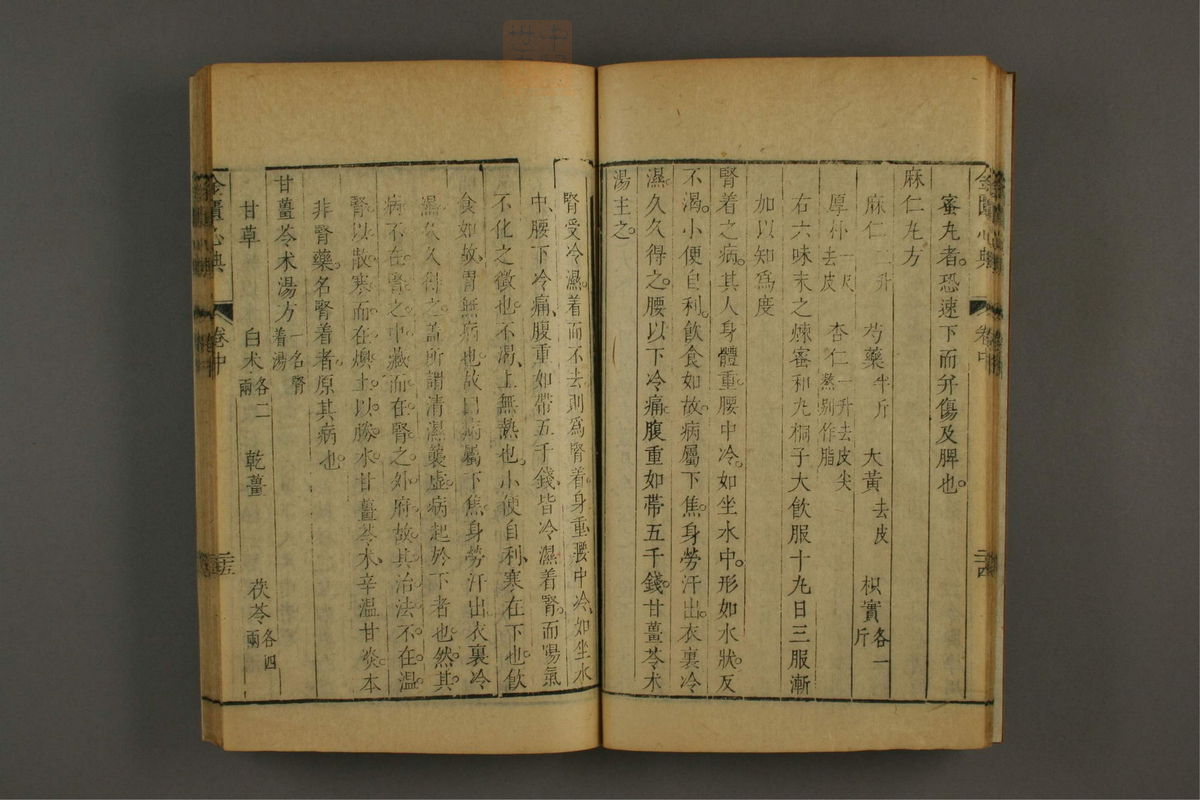 金匱心典
卷中
二十四
蜜丸者。恐速下而幷傷及脾也。
麻仁丸方
麻仁二升 芍藥半斤 大黃去皮 枳實各一斤
厚朴一尺去皮 杏仁一升去皮尖熬別作脂
右六味末之煉蜜和丸桐子大飲服十丸日三服漸
加以知爲度
腎着之病。其人身體重。腰中冷。如坐水中。形如水狀。反
不渴。小便自利。飲食如故。病屬下焦。身勞汗出。衣裏冷
濕。久久得之。腰以下冷痛。腹重如帶五千錢。甘薑苓术
湯主之。
腎受冷濕。着而不去。則爲腎着。身重。腰中冷、如坐水
中、腰下冷痛、腹重如帶五千錢、皆冷濕着腎。而陽氣
不化之徵也。不渴、上無熱也。小便自利、寒在下也。飲
食如故。胃無病也。故曰病屬下焦。身勞汗出。衣裏冷
濕。久久得之。蓋所謂清濕襲虛。病起於下者也。然其
病。不在腎之中藏。而在腎之外府。故其治法。不在溫
腎以散寒。而在燠土以勝水。甘薑苓术、辛溫甘淡。本
非腎藥。名腎着者。原其病也。
甘薑苓术湯方一名腎着湯
甘草 白术各二兩 乾薑 茯苓各四兩
金匱心典
卷中
二十五